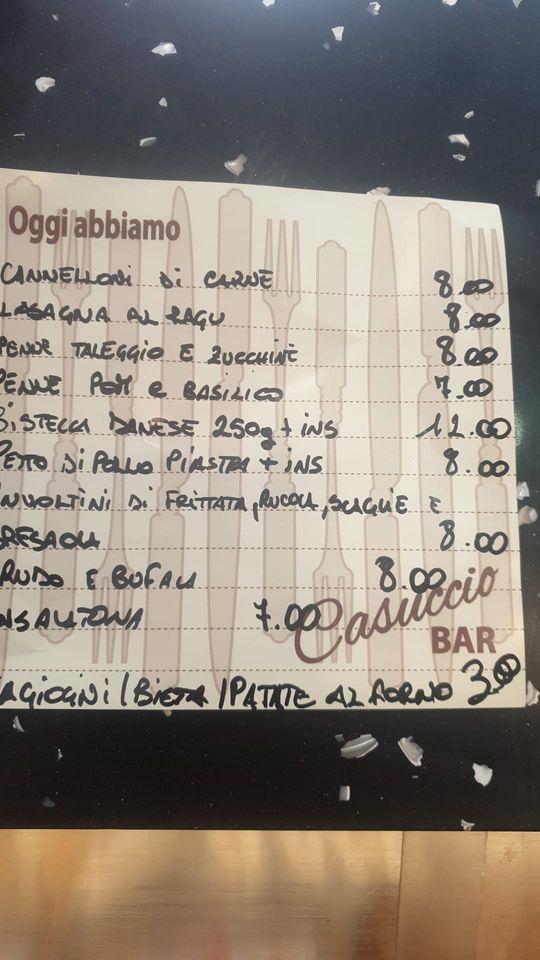 Oggi abbiamo
CANNELLONI Di CARNE 8.00
LASAGNA AL RAGU 8.00
PENNE TALEGGIO E ZUCCHINE 8.00
PENNE POM e BASILICO 7.00
BISTECCA DANESE 250g + iNS 12.00
PETTO Di POLLO PIASTRA + iNS 8.00
INVOLTINI Di FRITTATA, RUCOLA, SCAGLIE E
BRESAOLA 8.00
RUDO E BUFALA 8.00
NSALATONA 7.00
Casuccio
BAR
AGIOLINI / BIETA / PATATE AL FORNO 3.00